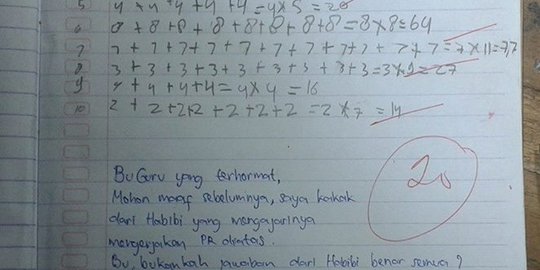 5 4 + 4 + 4 + 4 + 4 = 4 x 5 = 20
6 8 + 8 + 8 + 8 + 8 + 8 + 8 + 8 = 8 x 8 = 64
7 7 + 7 + 7 + 7 + 7 + 7 + 7 + 7 + 7 + 7 + 7 = 7 x 11 = 77
8 3 + 3 + 3 + 3 + 3 + 3 + 3 + 3 + 3 = 3 x 9 = 27
9 4 + 4 + 4 + 4 = 4 x 4 = 16
10 2 + 2 + 2 + 2 + 2 + 2 + 2 = 2 x 7 = 14
20
Bu Guru yang terhormat,
Mohon maaf sebelumnya, saya kakak
dari Habibi yang mengajarinya
mengerjakan PR diatas.
Bu, bukankah jawaban dari Habibi benar semua?